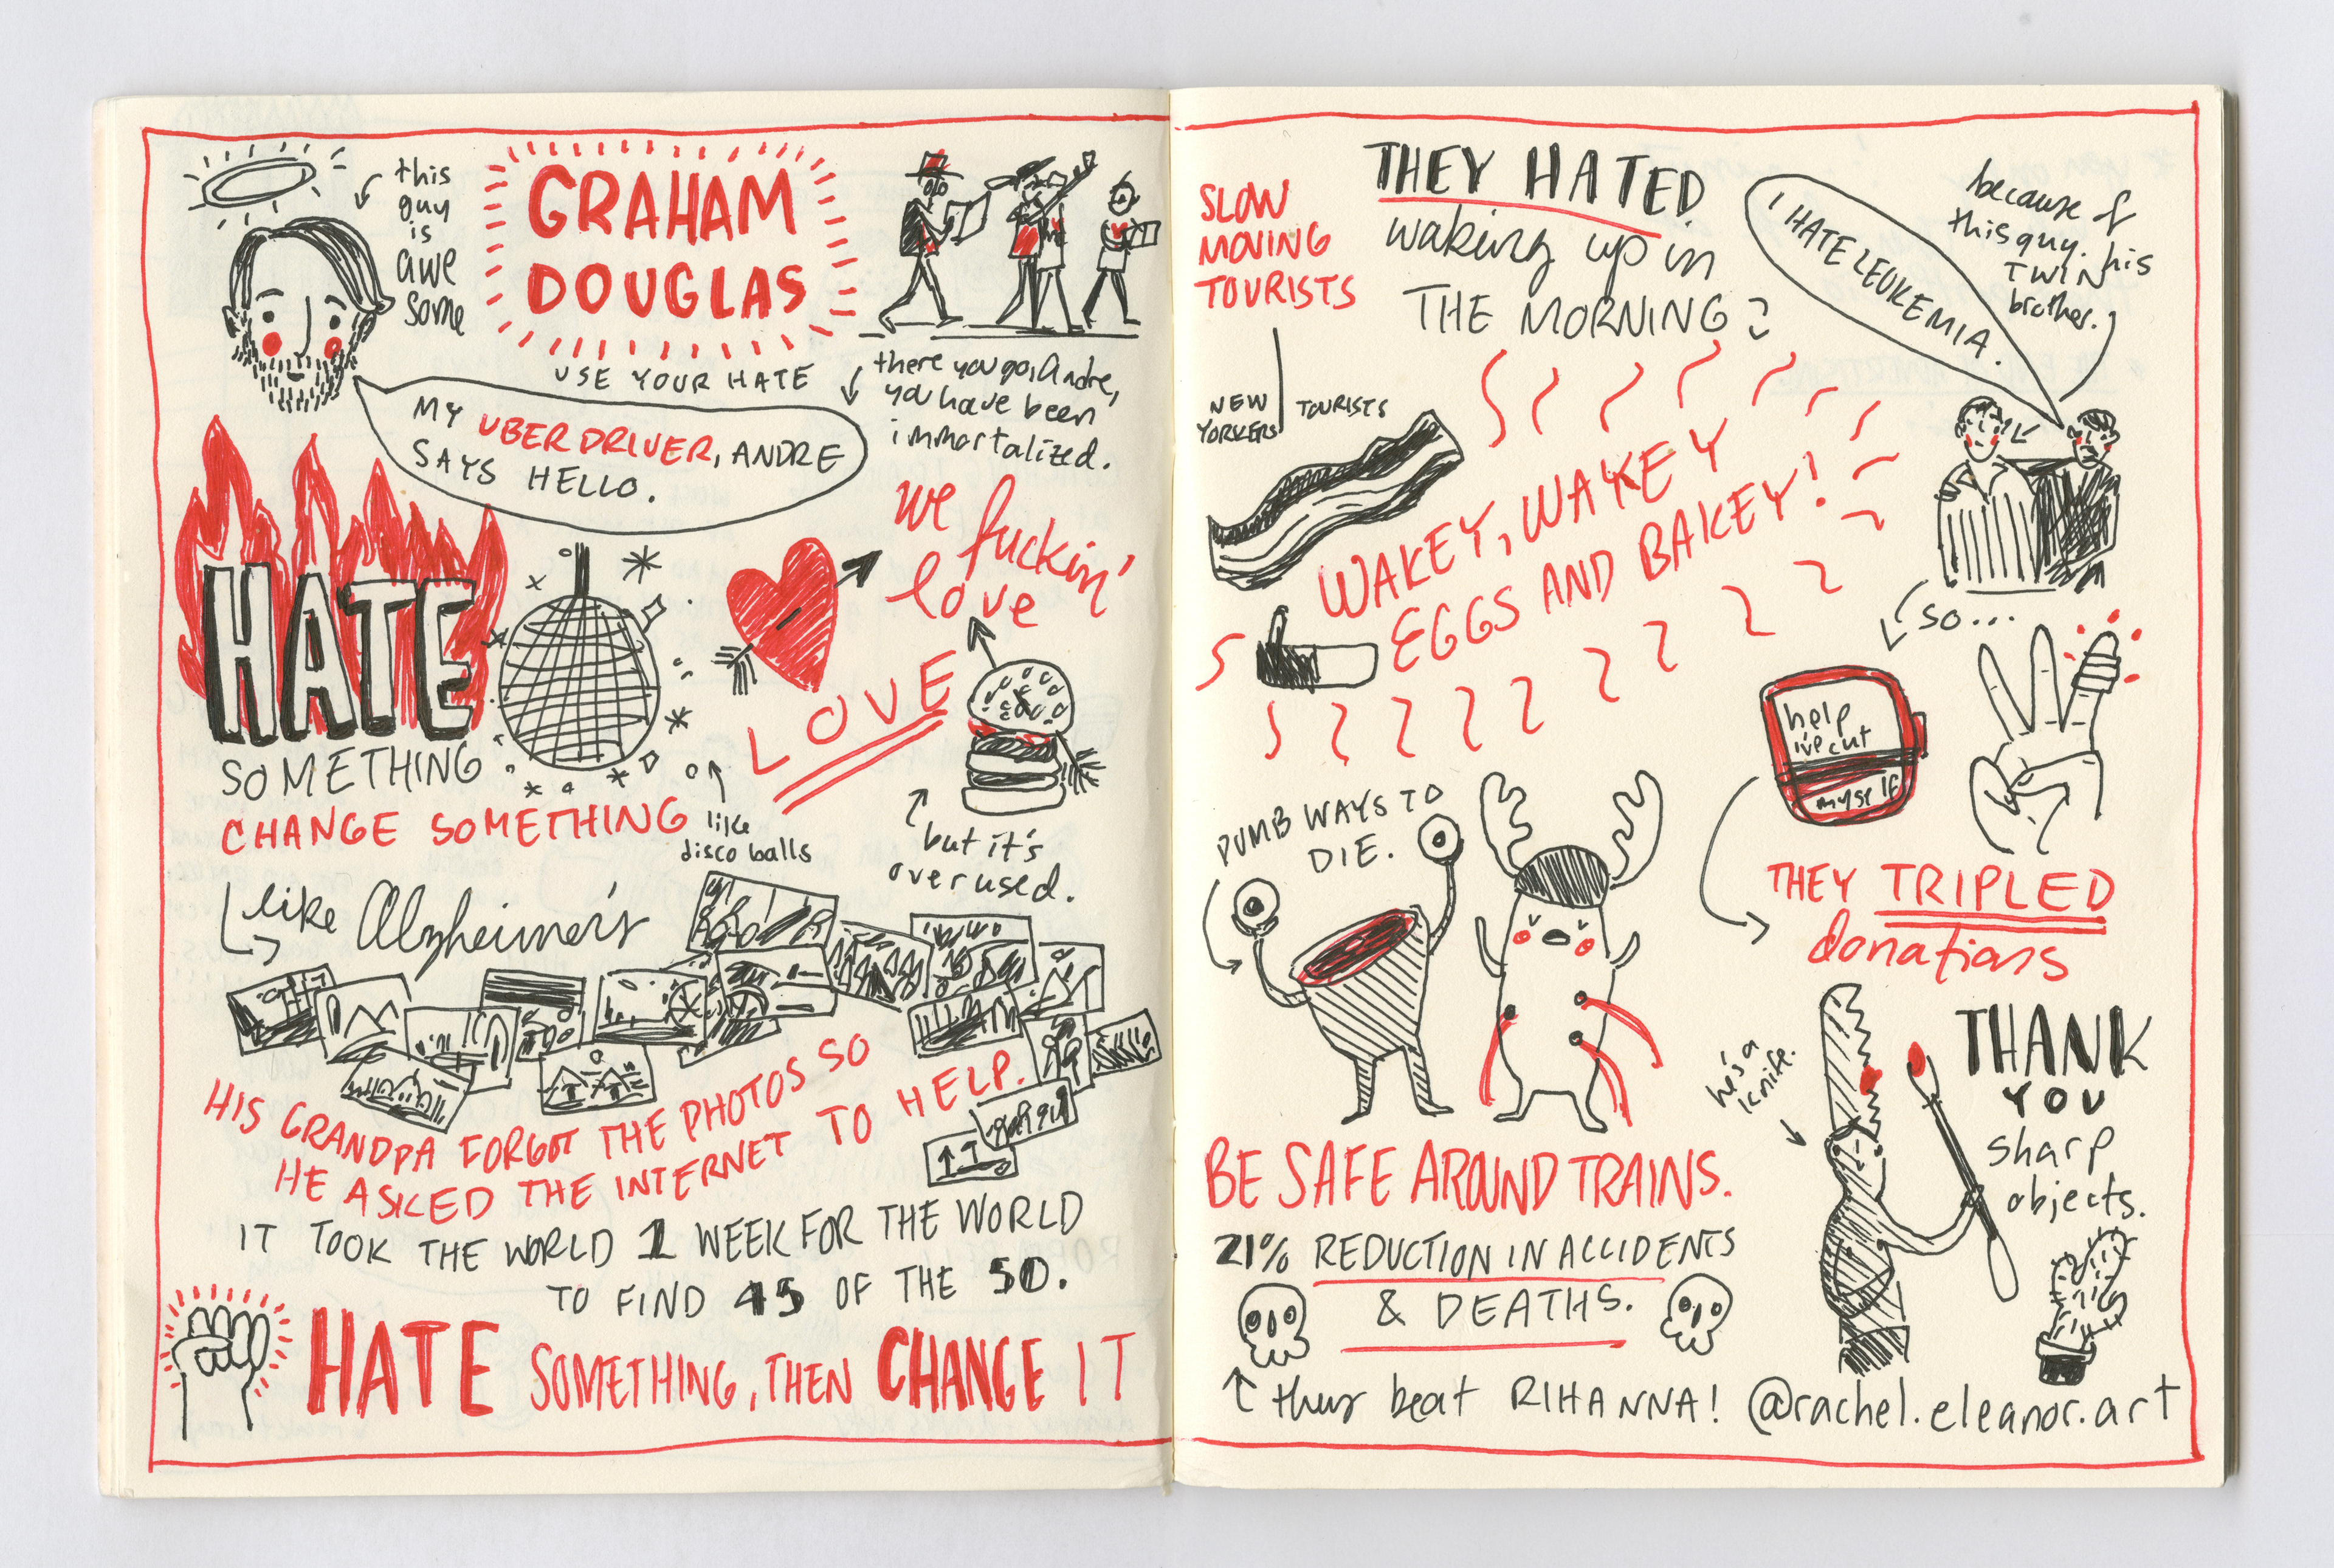 this
guy
is
awe
some
GRAHAM
DOUGLAS
USE YOUR HATE
MY UBER DRIVER, ANDRE
SAYS HELLO.
there you go, Andre,
you have been
immortalized.
HATE
SOMETHING
CHANGE SOMETHING
like
disco balls
we
fuckin'
love
LOVE
but it's
overused.
like Alzheimer's
HIS GRANDPA FORGOT THE PHOTOS SO
HE ASKED THE INTERNET TO HELP.
IT TOOK THE WORLD 1 WEEK FOR THE WORLD
TO FIND 45 OF THE 50.
HATE SOMETHING, THEN CHANGE IT
SLOW
MOVING
TOURISTS
NEW
YORKERS
TOURISTS
THEY HATED
waking up in
THE MORNING
I HATE LEUKEMIA.
because of
this guy. his
TWIN
brother.
WAKEY, WAKEY
EGGS AND BAKEY!
SO...
help
i've cut
myself
THEY TRIPLED
donations
DUMB WAYS TO
DIE.
BE SAFE AROUND TRAINS.
21% REDUCTION IN ACCIDENTS
& DEATHS.
they beat RIHANNA!
he's a
knife.
THANK
YOU
sharp
objects.
@rachel.eleanor.art